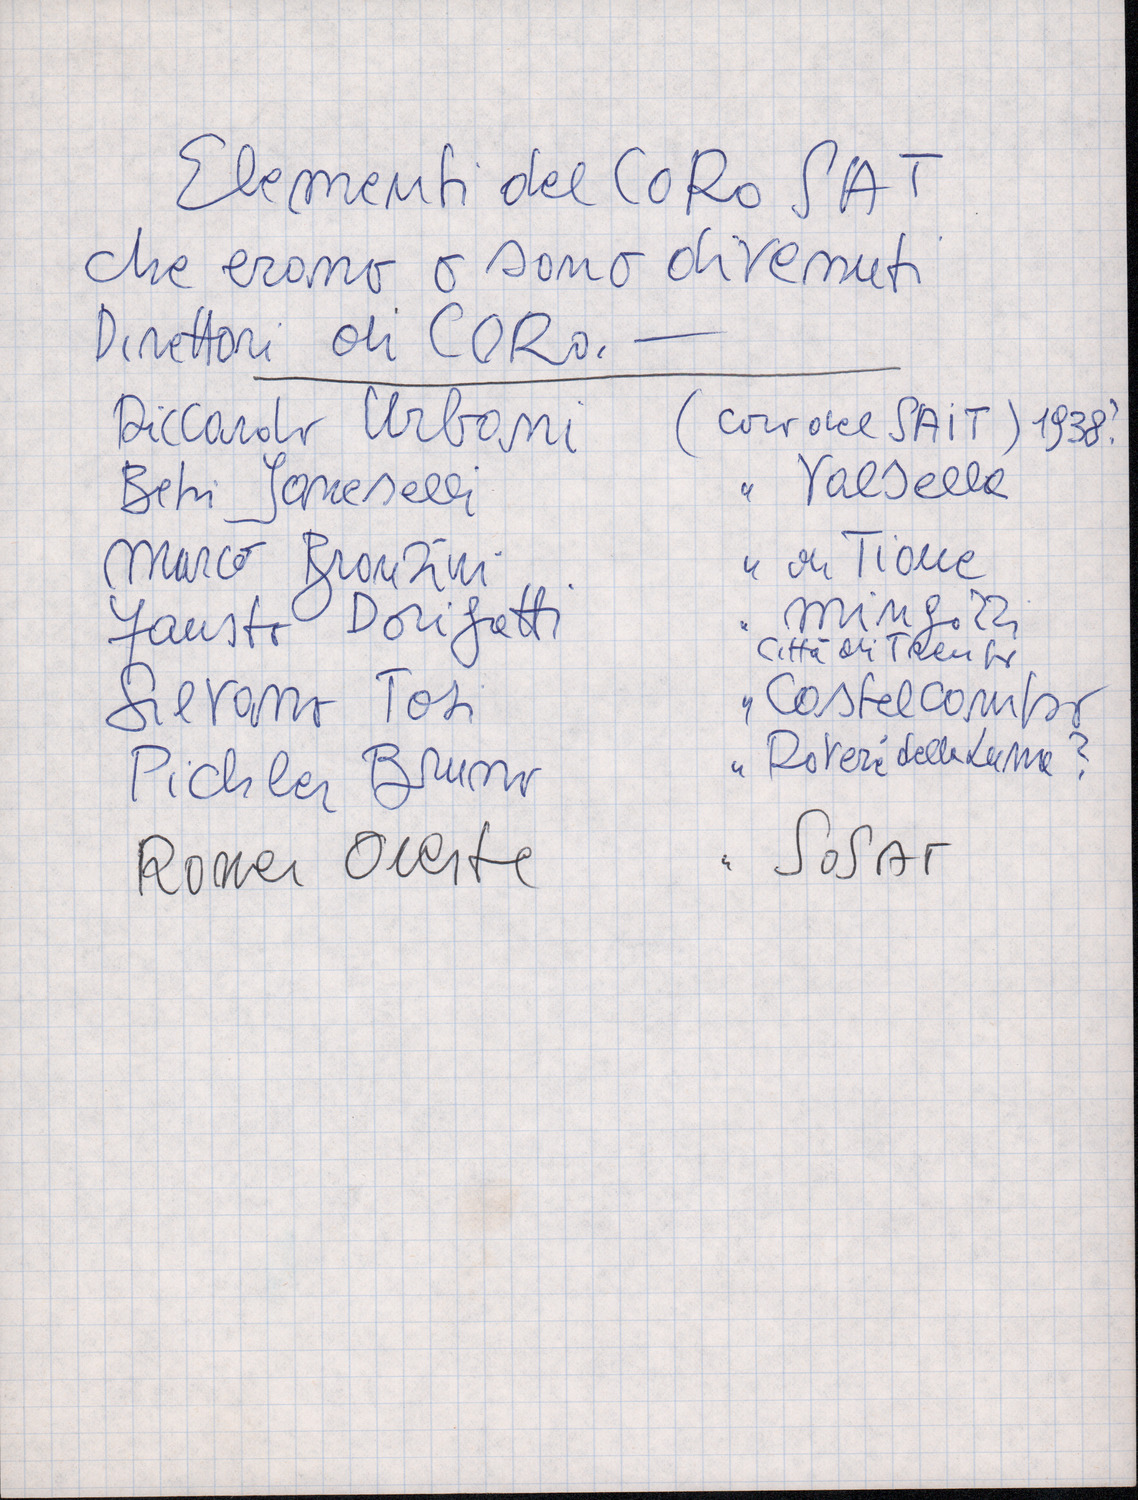 Elementi del CORO SAT
che erano o sono divenuti
Direttori di CORO. —
Riccardo Urbani ( coro del SAIT ) 1938?
Bepi Jameselli " Valsella
Marco Bronzini " di Tione
Fausto Dorigatti " Mingozzi
Città di Trento
Silvano Tosi " Castelcampo
Pichler Bruno " Roverè della Luna?
Roner Oreste " SOSAT